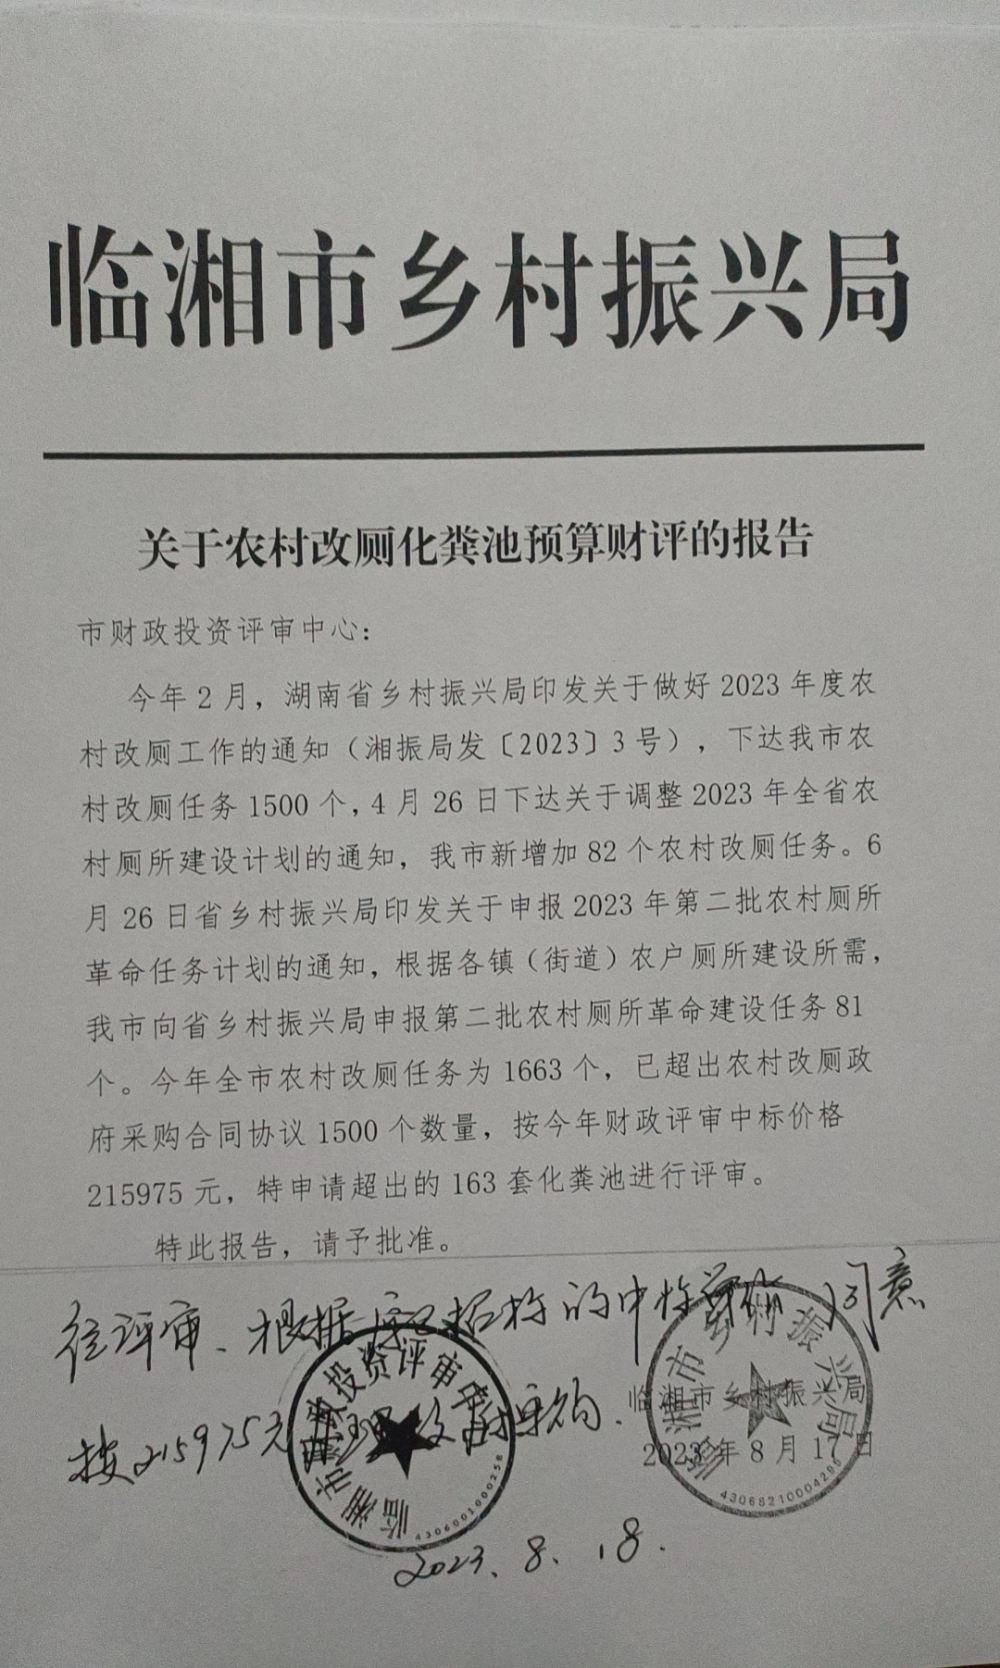 临湘市乡村振兴局
关于农村改厕化粪池预算财评的报告
市财政投资评审中心：
今年2月，湖南省乡村振兴局印发关于做好2023年度农
村改厕工作的通知（湘振局发〔2023〕3号），下达我市农
村改厕任务1500个，4月26日下达关于调整2023年全省农
村厕所建设计划的通知，我市新增加82个农村改厕任务。6
月26日省乡村振兴局印发关于申报2023年第二批农村厕所
革命任务计划的通知，根据各镇（街道）农户厕所建设所需，
我市向省乡村振兴局申报第二批农村厕所革命建设任务81
个。今年全市农村改厕任务为1663个，已超出农村改厕政
府采购合同协议1500个数量，按今年财政评审中标价格
215975元，特申请超出的163套化粪池进行评审。
特此报告，请予批准。
经评审、根据 招标的中标 同意
按215975元 采购.
临湘市乡村振兴局
2023年8月17日
临湘市乡村振兴局
43068210004286
临湘市财政投资评审中心
4306001000258
2023.8.18.